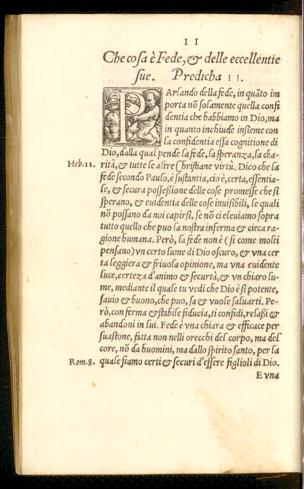 II
Che cosa è Fede, & delle eccellentie
sue. Predicha II.
PArlando della fede, in quāto im
porta nō solamente quella confi
dentia che habbiamo in Dio, ma
in quanto inchiude insieme con
la confidentia essa cognitione di
Dio, dalla qual pende la fede, la speranza, la cha-
Heb. 11. rità, & tutte le altre Christiane virtù. Dico che la
fede secondo Paulo, è sustantia, cio è, certa, essentia-
le, & secura possessione delle cose promesse che si
sperano, & euidentia delle cose inuisibili, le quali
nō possano da noi capirsi, se nō ci eleuiamo sopra
tutto quello che puo la nostra inferma & cieca ra-
gione humana. Però, la fede non è (si come molti
pensano) vn certo lume di Dio oscuro, & vna cer
ta leggiera & friuola opinione, ma vna euidente
luce, certeza d'animo & securtà, & vn chiaro lu-
me, mediante il quale tu vedi che Dio è si potente,
sauio & buono, che puo, sa & vuole saluarti. Pe-
rò, con ferma & stabile fiducia, ti confidi, relassi &
abandoni in lui. Fede è vna chiara & efficace per
suasione, fatta non nelli orecchi del corpo, ma del
core, nō da huomini, ma dallo spirito santo, per la
Rom. 8. quale siamo certi & securi d'essere figlioli di Dio.
E vna